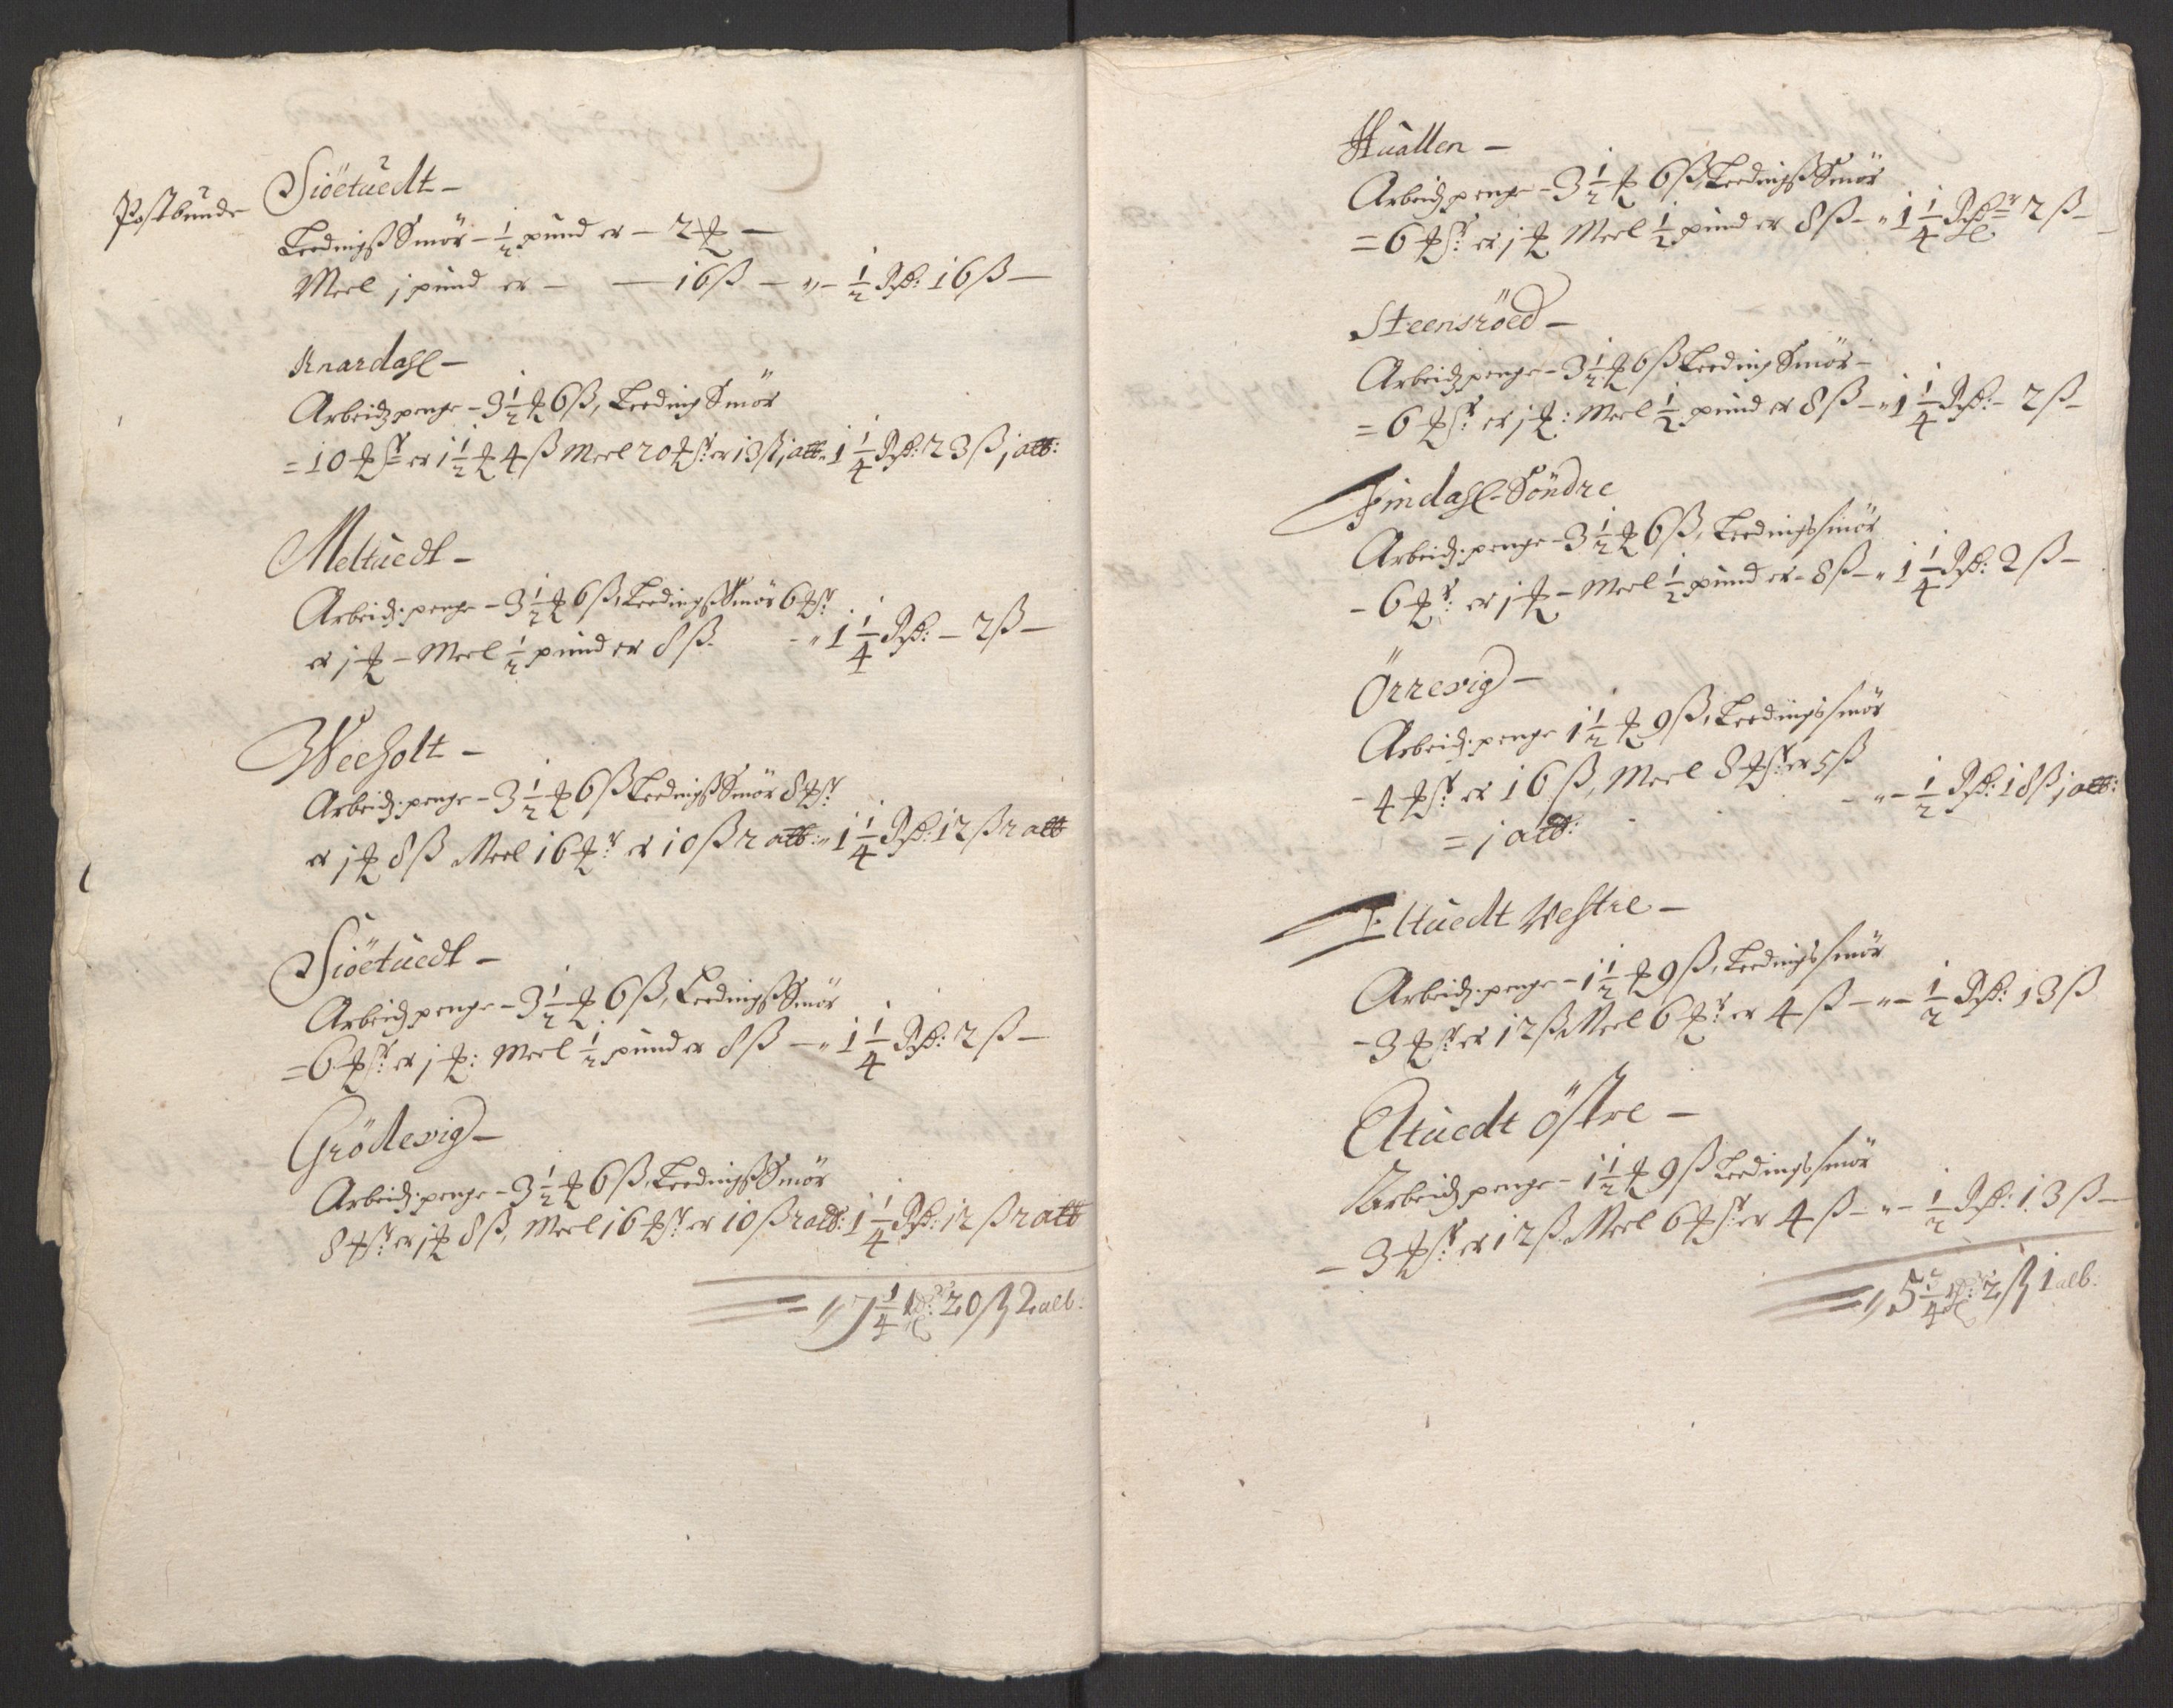 Postbunde
Siöetuedt –
Leedingß Smör – ½ pund er – 2 ℔ –
Meel j pund er – – 16 ß – „ – ½ Rdr: 16 ß –
Knardahl –
Arbeidz penge – 3½ ℔ 6 ß, Leeding Smör
= 10 ℔r er 1½ ℔ 4 ß Meel 20 ℔r er 13 ß j alb „ 1¼ Rdr: 23 ß j alb:
Meltuedt –
Arbeidz penge – 3½ ℔ 6 ß, Leedingß Smör 6 ℔r
er j ℔ – Meel ½ pund er 8 ß – „ 1¼ Rdr: – 2 ß –
Weeholt –
Arbeidz penge – 3½ ℔ 6 ß Leedingß Smör 8 ℔r
er j ℔ 8 ß Meel 16 ℔r er 10 ß 2 alb: „ 1¼ Rdr: 12 ß 2 alb
Siöetuedt –
Arbeidz penge – 3½ ℔ 6 ß, Leedingß Smör
= 6 ℔r er j ℔: Meel ½ pund er 8 ß – „ 1¼ Rdr: 2 ß –
Grödevig –
Arbeidz penge – 3½ ℔ 6 ß, Leedingß Smör
8 ℔r er j ℔ 8 ß, Meel 16 ℔r er 10 ß 2 alb: 1¼ Rdr: 12 ß 2 alb
= „ 7¼ Rdr: 20 ß 2 alb:
Huallen –
Arbeidz penge – 3½ ℔ 6 ß, Leedingß Smör
= 6 ℔r er j ℔ Meel ½ pund er 8 ß – „ 1¼ Rdr 2 ß –
Steensröed –
Arbeidz penge – 3½ ℔ 6 ß Leeding Smör –
= 6 ℔r er j ℔: Meel ½ pund er 8 ß – „ 1¼ Rdr: – 2 ß –
Findahl Söndre
Arbeidz penge – 3½ ℔ 6 ß, Leedings smör
– 6 ℔r: er j ℔ – Meel ½ pund er – 8 ß – „ 1¼ Rdr: 2 ß –
Örrevig –
Arbeidz penge 1½ ℔ 9 ß, Leedings smör
– 4 ℔r er 16 ß, Meel 8 ℔r er 5 ß
= j alb: – „ – ½ Rdr: 18 ß j alb:
Eltuedt Vestre –
Arbeidz penge – 1½ ℔ 9 ß, Leedings smör
– 3 ℔r er 12 ß Meel 6 ℔r er 4 ß – „ – ½ Rdr: 13 ß
Eltuedt östre –
Arbeidz penge – 1½ ℔ 9 ß Leedings smör
– 3 ℔r er 12 ß Meel 6 ℔r er 4 ß – „ – ½ Rdr: 13 ß –
= „ 5¼ Rdr: 2 ß 1 alb: